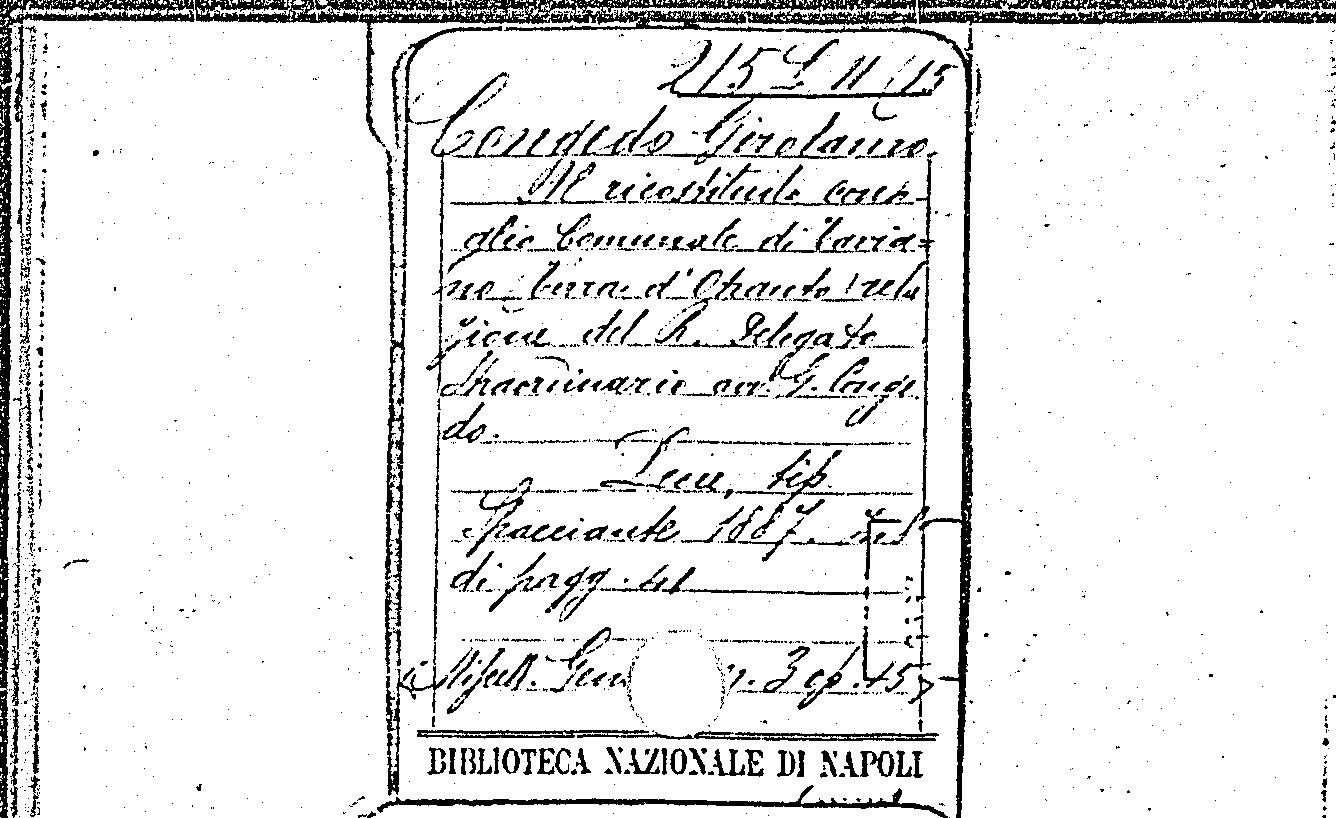 215 L 11 (15
Congedo Girolamo.
Al ricostituito consi-
glio Comunale di Tavia=
no Terra d'Otranto: rela
zione del R. Delegato
Straordinario avv. G. Conge
do.
Lecce, tip.
Spacciante 1887. in 8°
di pagg. 41
3 op. 15)
BIBLIOTECA NAZIONALE DI NAPOLI